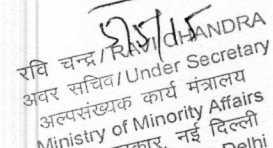 रवि चन्द्र/RAVI CHANDRA
अवर सचिव/Under Secretary
अल्पसंख्यक कार्य मंत्रालय
Ministry of Minority Affairs
नई दिल्ली
Delhi